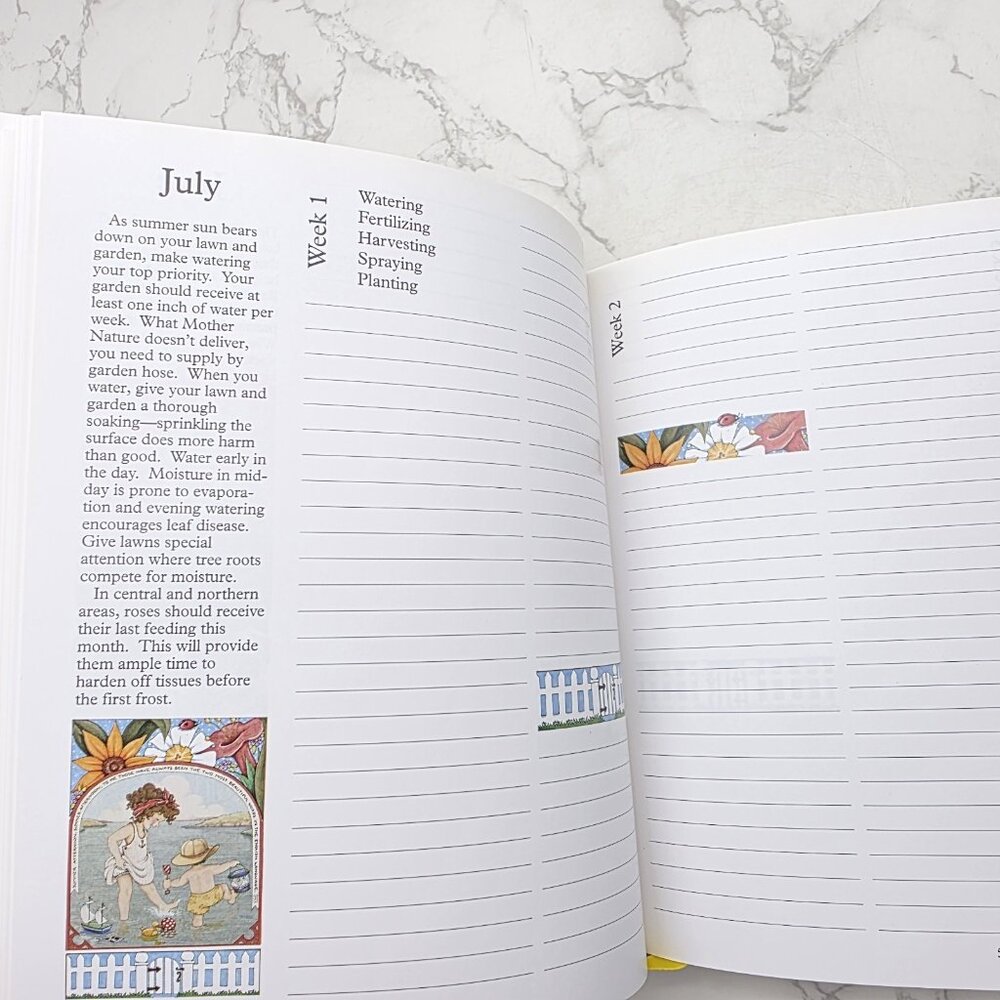 July
As summer sun bears
down on your lawn and
garden, make watering
your top priority. Your
garden should receive at
least one inch of water per
week. What Mother
Nature doesn't deliver,
you need to supply by
garden hose. When you
water, give your lawn and
garden a thorough
soaking—sprinkling the
surface does more harm
than good. Water early in
the day. Moisture in mid-
day is prone to evapora-
tion and evening watering
encourages leaf disease.
Give lawns special
attention where tree roots
compete for moisture.
In central and northern
areas, roses should receive
their last feeding this
month. This will provide
them ample time to
harden off tissues before
the first frost.
SUMMER AFTERNOON, SUMMER AFTERNOON; TO ME THOSE HAVE ALWAYS BEEN THE TWO MOST BEAUTIFUL WORDS IN THE ENGLISH LANGUAGE.
Week 1
Watering
Fertilizing
Harvesting
Spraying
Planting
Week 2